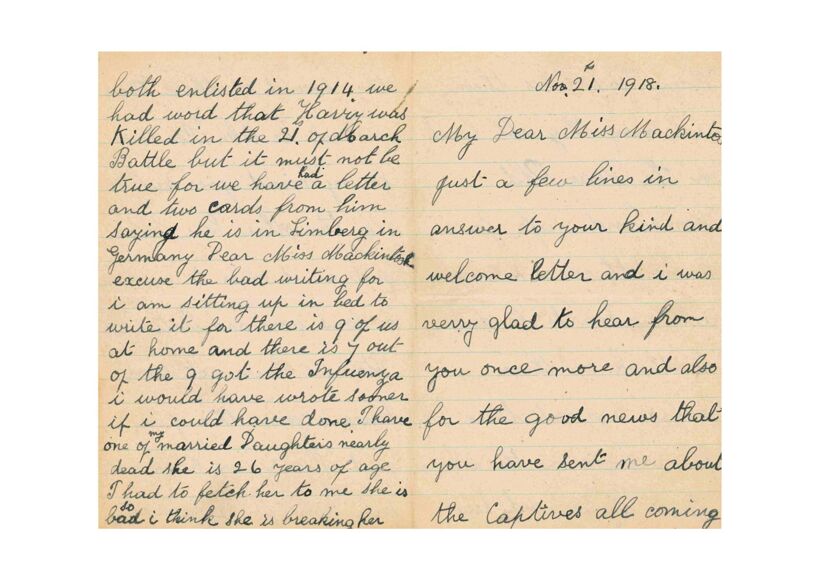 both enlisted in 1914 we
had word that Harry was
Killed in the 21. of March
Battle but it must not be
true for we have had a letter
and two cards from him
saying he is in Limberg in
Germany Dear Miss Mackintosh
excuse the bad writing for
i am sitting up in bed to
write it for there is 9 of us
at home and there is 7 out
of the 9 got the Infuenza
i would have wrote sooner
if i could have done I have
one of my married Daughters nearly
dead she is 26 years of age
I had to fetch her to me she is
so bad i think she is breaking her
Nov. 21. 1918.
My Dear Miss Mackintos
just a few lines in
answer to your kind and
welcome letter and i was
verry glad to hear from
you once more and also
for the good news that
you have sent me about
the Captives all coming